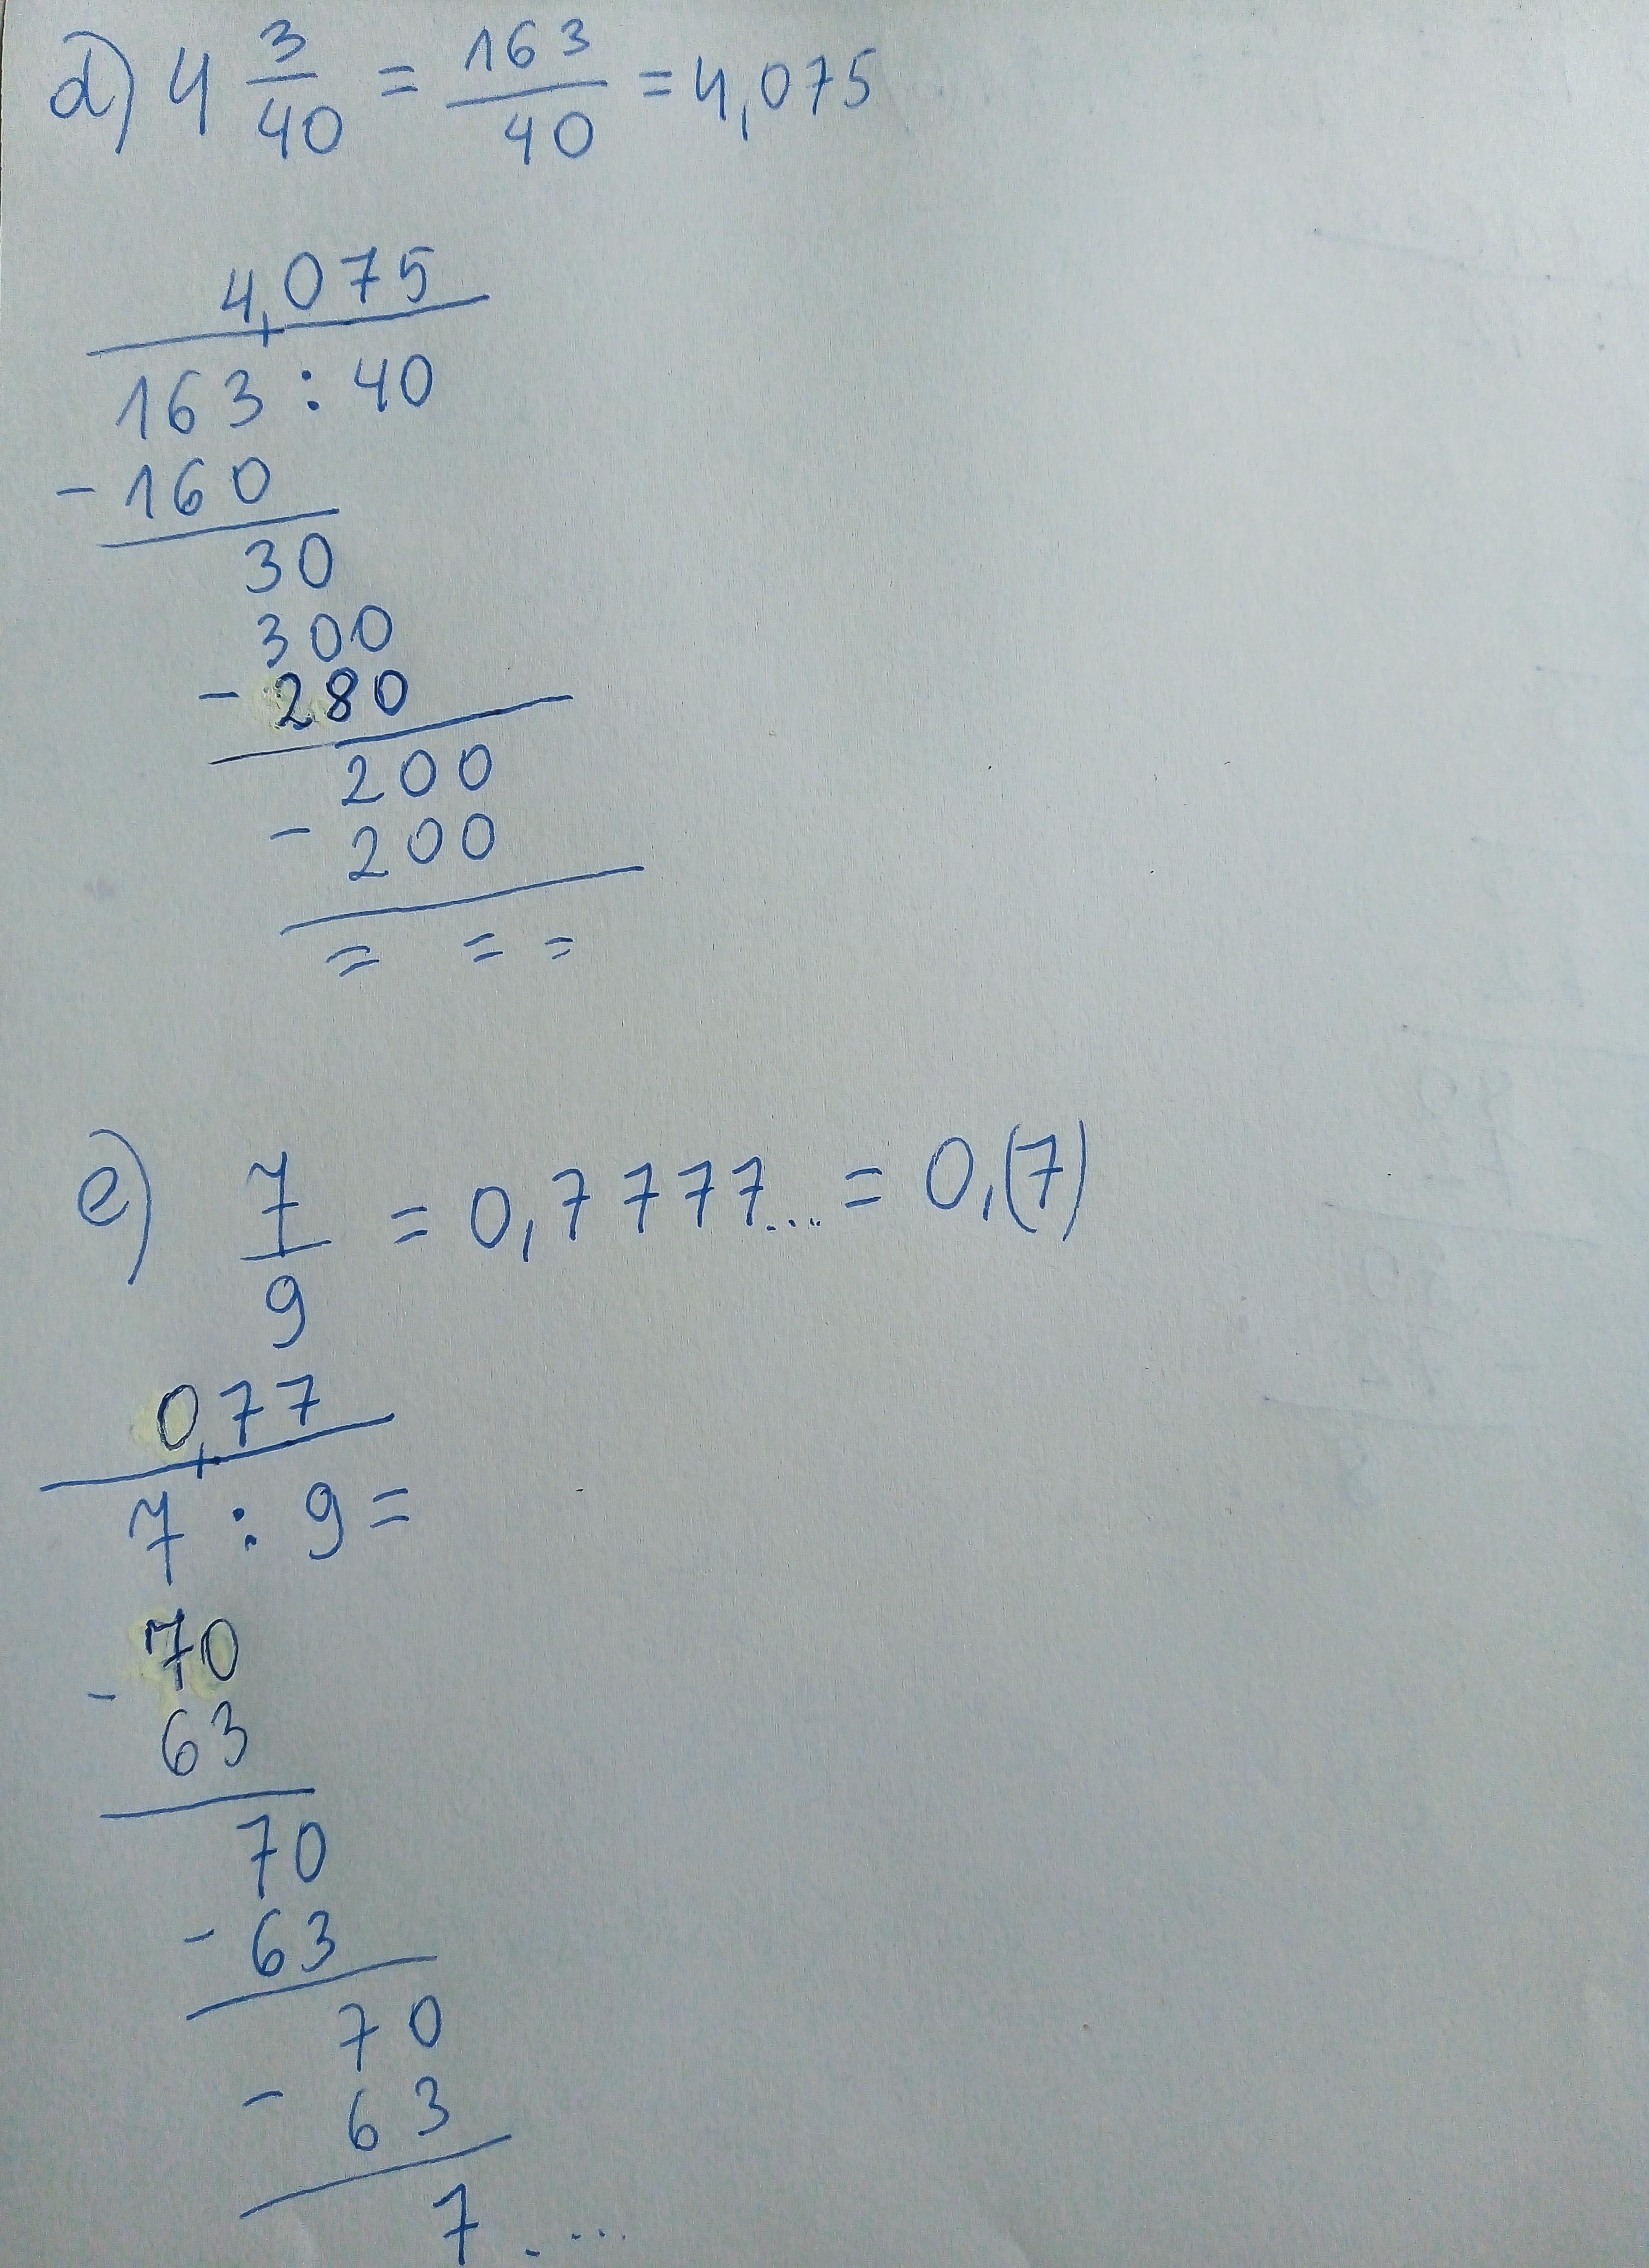 d) 4 3/40 = 163/40 = 4,075
4,075
163 : 40
- 160
30
300
- 280
200
- 200
= = =
e) 7/9 = 0,7777... = 0,(7)
0,77
7 : 9 =
- 70
63
70
- 63
70
- 63
7 ....